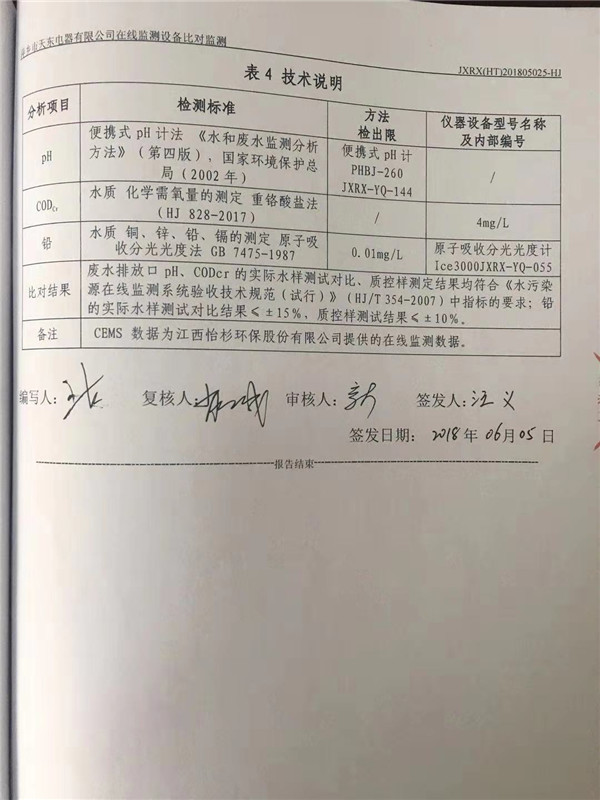 天东电器有限公司在线监测设备比对监测
JXRX(HT)201805025-HJ
表 4 技术说明
分析项目 检测标准 方法检出限 仪器设备型号名称及内部编号
pH 便携式 pH 计法 《水和废水监测分析方法》（第四版），国家环境保护总局（2002 年） 便携式 pH 计 PHBJ-260 JXRX-YQ-144 /
CODCr 水质 化学需氧量的测定 重铬酸盐法（HJ 828-2017） / 4mg/L
铅 水质 铜、锌、铅、镉的测定 原子吸收分光光度法 GB 7475-1987 0.01mg/L 原子吸收分光光度计 Ice3000JXRX-YQ-055
比对结果 废水排放口 pH、CODcr 的实际水样测试对比、质控样测定结果均符合《水污染
源在线监测系统验收技术规范（试行）》（HJ/T 354-2007）中指标的要求；铅
的实际水样测试对比结果≤±15%，质控样测试结果≤±10%。
备注 CEMS 数据为江西怡杉环保股份有限公司提供的在线监测数据。
编写人： 复核人： 审核人： 签发人：汪义
签发日期： 2018 年 06月 05 日
报告结束